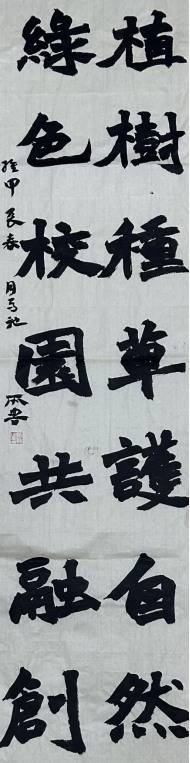 植樹種草護自然
綠色校園共融創
甲辰春月
書